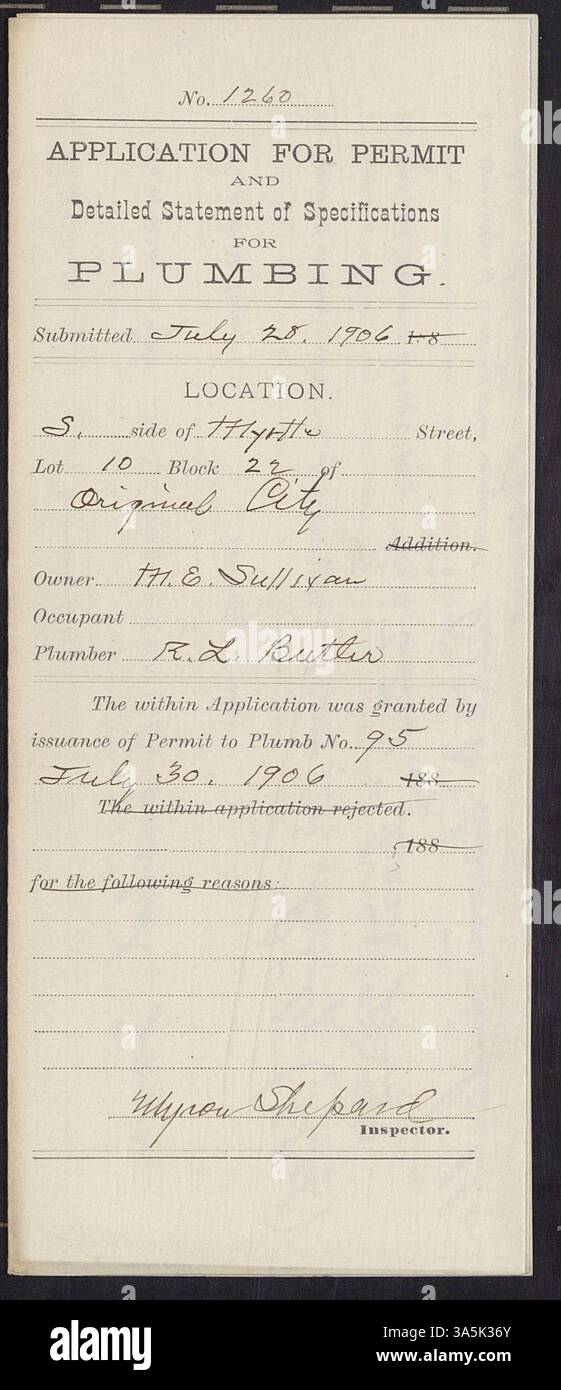 No. 1260
APPLICATION FOR PERMIT
AND
Detailed Statement of Specifications
FOR
PLUMBING.
Submitted July 28, 1906 188
LOCATION.
S. side of Myrtle Street,
Lot 10 Block 22 of
Original City
Addition.
Owner M. E. Sullivan
Occupant
Plumber R. L. Butler
The within Application was granted by
issuance of Permit to Plumb No. 95
July 30, 1906 188
The within application rejected.
188
for the following reasons:
Myron Shepard
Inspector.
alamy
Image ID: 3A5K36Y
www.alamy.com